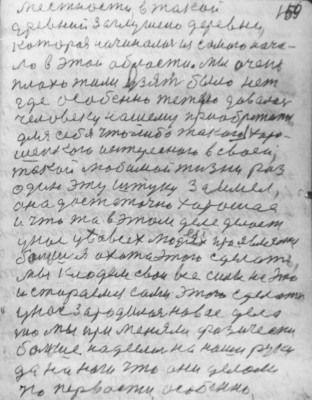 159
местность в такой
древний заглушено деревни,
которая начинался из самого нача-
ло в этой области. мы очень
плохо жили взять было нет
где особенно
человеку нашему приобретать
для себя что либо такого хоро-
шенького интересного в своей
такой любимой жизни раз
один эту штуку заимел
она достаточно хорошая
и что та в этом деле делает
у нас у всех людях проявляется
большия охота этого сделать
мы кладём свои все силы на это
и стараемся сами этого сделать
у нас зародилося новое дело
то мы применяли физически
больше надеялись на наши руки
да на ноги что они делали
по первости особенно,